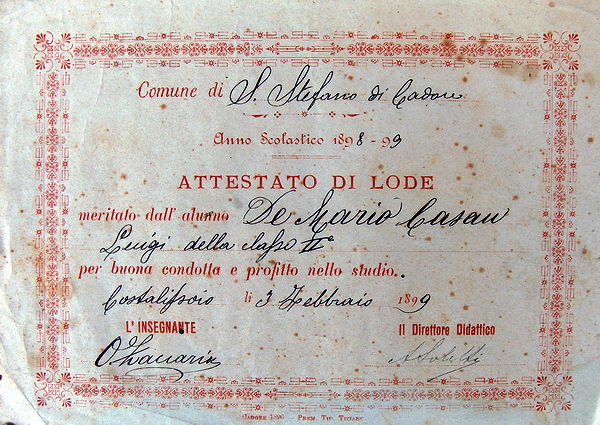 Comune di S. Stefano di Cadore
Anno Scolastico 1898-99
ATTESTATO DI LODE
meritato dall' alunno De Mario Casau
Luigi della classe IIa
per buona condotta e profitto nello studio.
Costalissoio li 3 Febbraio 1899
L'INSEGNANTE Il Direttore Didattico
O. Zaccaria
PREM. TIP. TIZIANO